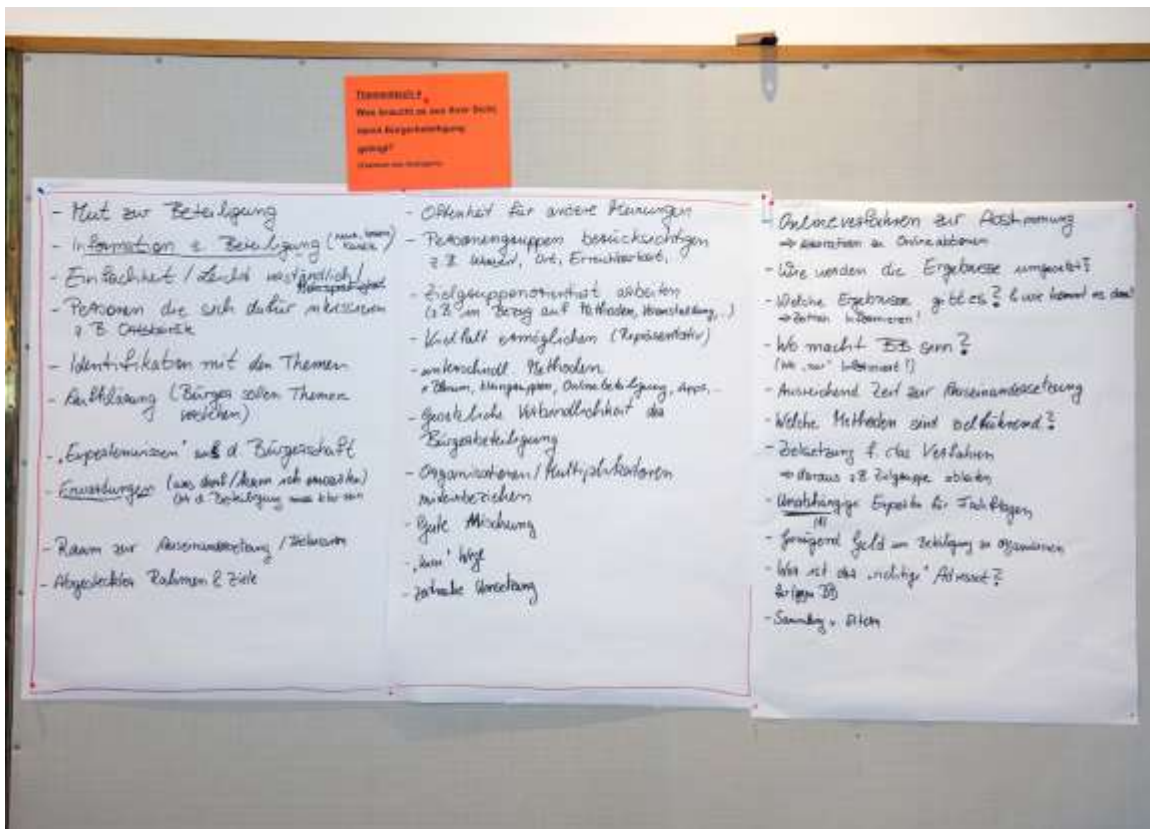 Was braucht es aus Ihrer Sicht,
damit Bürgerbeteiligung
gelingt?
- Mut zur Beteiligung
- Information z. Beteiligung
- Einfachheit / Leicht verständlich /
Mehrsprachigkeit
- Personen die sich dafür interessieren
z B Ortsbeiräte
- Identifikation mit den Themen
- Aufklärung (Bürger sollen Themen
verstehen)
- „Expertenwissen" aus d Bürgerschaft
- Erwartungen (was darf / kann ich erwarten)
Art d. Beteiligung muss klar sein
- Raum zur Auseinandersetzung /
- Abgesteckter Rahmen & Ziele
- Offenheit für andere Meinungen
- Personengruppen berücksichtigen
z.B. Ort, Erreichbarkeit,
- Zielgruppenorientiert arbeiten
(z B in Bezug auf Methoden, Veranstaltung, ..)
- Vielfalt ermöglichen (Repräsentativ)
- unterschiedl. Methoden
Onlinebeteiligung, Apps, ...
- Gesetzliche Verbindlichkeit der
Bürgerbeteiligung
- Organisationen / Multiplikatoren
miteinbeziehen
- Gute Mischung
Wege
- zeitnahe Umsetzung
- Onlineverfahren zur Abstimmung
- Wie werden die Ergebnisse umgesetzt?
- Welche Ergebnisse gibt es? & wie kommt es dazu?
Informieren!
- Wo macht BB Sinn?
(Wo „nur" Informiert!)
- Ausreichend Zeit zur Auseinandersetzung
- Welche Methoden sind zielführend?
- Zielsetzung f. das Verfahren
⇒ daraus z B Zielgruppe ableiten
- Unabhängige Experten für Fachfragen
- Genügend Geld um Beteiligung zu organisieren
- Wer ist der „richtige" Adressat?
- Sammlung v.